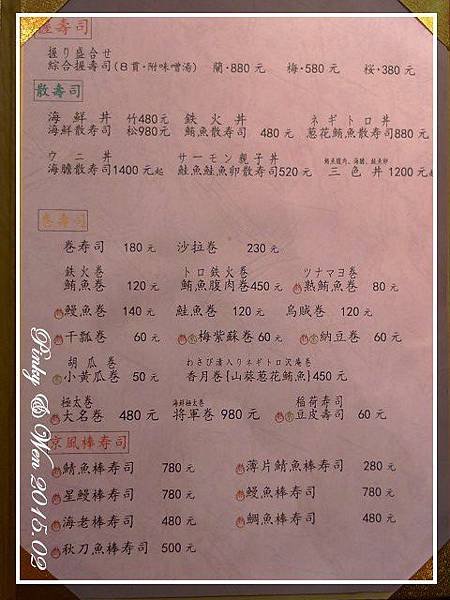 握壽司
握り盛合せ
綜合握壽司(8貫·附味噌湯) 蘭·880元 梅·580元 桜·380元
散壽司
海鮮丼 竹480元 鉄火丼 ネギトロ丼
海鮮散寿司 松980元 鮪魚散寿司 480元 葱花鮪魚散寿司880元
ウニ丼 サーモン親子丼 鮪魚腹肉、海膽、鮭魚卵
海膽散寿司1400元起 鮭魚鮭魚卵散寿司520元 三色丼 1200元起
卷壽司
巻寿司 180元 沙拉巻 230元
鉄火巻 トロ鉄火巻 ツナマヨ巻
鮪魚巻 120元 鮪魚腹肉巻450元 熟鮪魚巻 80元
鰻魚巻 140元 鮭魚巻 120元 烏賊巻 120元
干瓢巻 60元 梅紫蘇巻 60元 納豆巻 60元
胡瓜巻 わさび漬入りネギトロ沢庵巻
小黃瓜巻 50元 香月巻{山葵葱花鮪魚}450元
極太巻 海鮮極太巻 稲荷寿司
大名巻 480元 將軍巻 980元 豆皮壽司 60元
京風棒寿司
鯖魚棒寿司 780元 薄片鯖魚棒寿司 280元
星鰻棒寿司 780元 鰻魚棒寿司 780元
海老棒寿司 480元 鯛魚棒寿司 480元
秋刀魚棒寿司 500元
Pinky @ Wen 2015.02